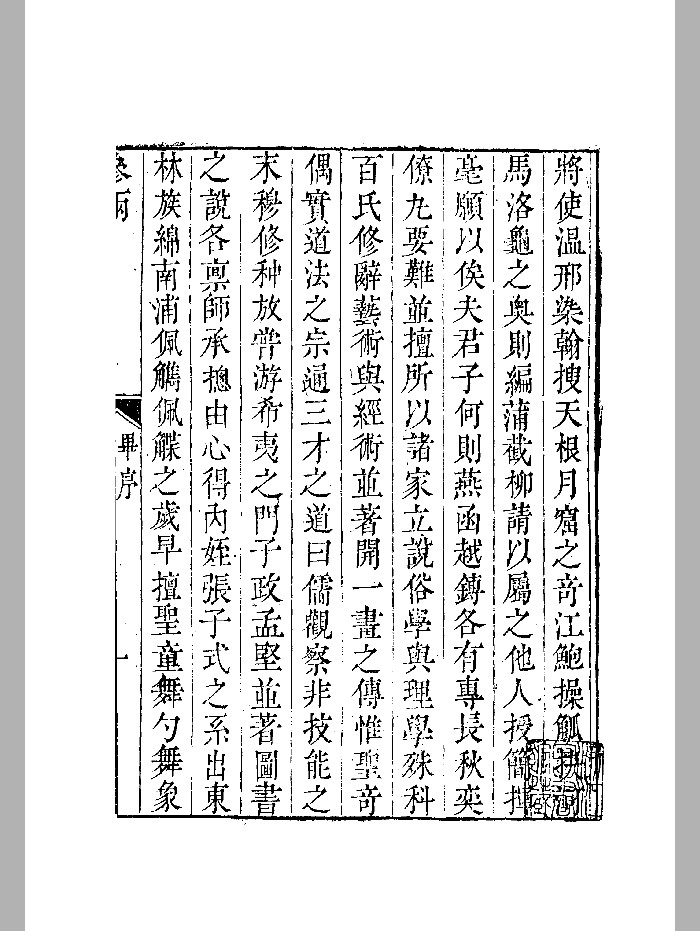 將使温邢染翰搜天根月窟之竒江鮑操觚抉河
馬洛龜之奥則編蒲截柳請以屬之他人授簡抽
毫願以俟夫君子何則燕函越鏄各有專長秋奕
僚九要難並擅所以諸家立說俗學與理學殊科
百氏修辭藝術與經術並著開一畫之傳惟聖竒
偶實道法之宗通三才之道曰儒觀察非技能之
末穆修种放甞游希夷之門子政孟堅並著圖書
之說各禀師承摠由心得内姪張子式之系出東
林族綿南浦佩觿佩韘之歲早擅聖童舞勺舞象
參兩
畢序
一